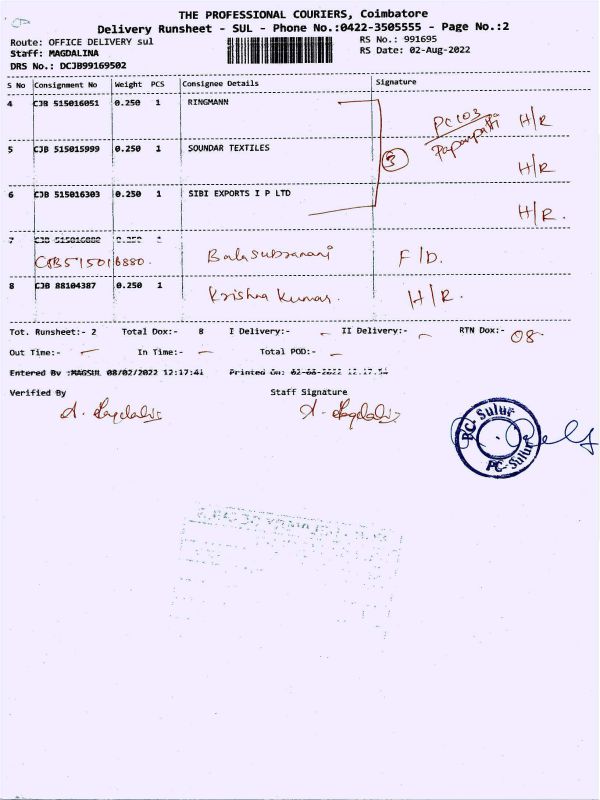 THE PROFESSIONAL COURIERS, Coimbatore
Delivery Runsheet - SUL - Phone No.:0422-3505555 - Page No.:2
Route: OFFICE DELIVERY sul RS No.: 991695
Staff: MAGDALINA RS Date: 02-Aug-2022
DRS No.: DCJB99169502
S No Consignment No Weight PCS Consignee Details Signature
4 CJB 515016051 0.250 1 RINGMANN PC103 H/R
Papampatti
5 CJB 515015999 0.250 1 SOUNDAR TEXTILES 3 H/R
6 CJB 515016303 0.250 1 SIBI EXPORTS I P LTD H/R.
7 CJB 515016880 0.250 1
CJB515016880. Balasubramani F/D.
8 CJB 88104387 0.250 1 Krishna Kumar. H/R.
Tot. Runsheet:- 2 Total Dox:- 8 I Delivery:- - II Delivery:- - RTN Dox:- 08
Out Time:- - In Time:- - Total POD:- -
Entered By :MAGSUL 08/02/2022 12:17:41 Printed On: 02-08-2022 12.17.54
Verified By Staff Signature
PC-Sulur
PC-Sulur